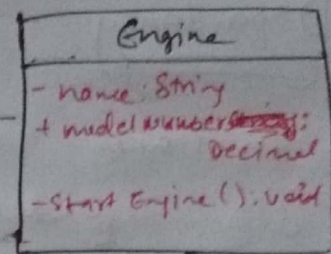 Engine
- name: String
+ modelnumber:
Decimal
- Start Engine(): void